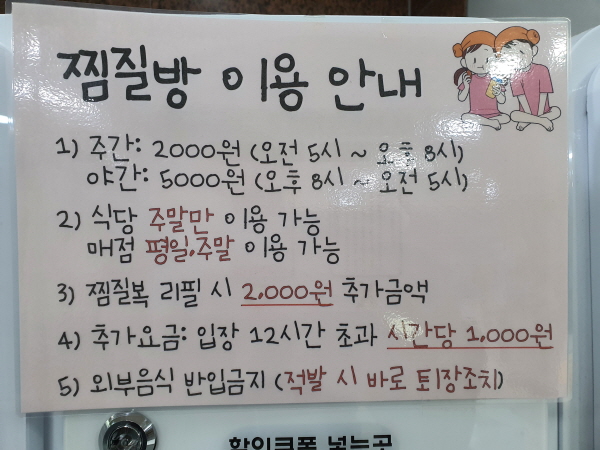 찜질방 이용 안내
1) 주간: 2000원 (오전 5시 ~ 오후 8시)
야간: 5000원 (오후 8시 ~ 오전 5시)
2) 식당 주말만 이용 가능
매점 평일,주말 이용 가능
3) 찜질복 리필 시 2,000원 추가금액
4) 추가요금: 입장 12시간 초과 시간당 1,000원
5) 외부음식 반입금지 (적발 시 바로 퇴장조치)
할인쿠폰 넣는곳